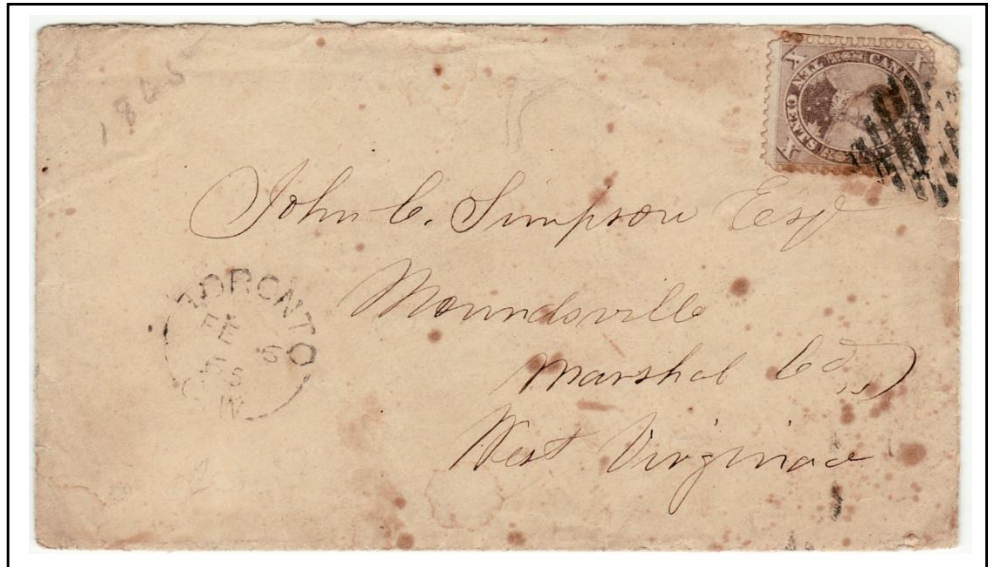 1865
X TEN CENTS CANA X
X
John C. Simpson Esq
Moundsville
Marshal Co,,
West Virginia
TORONTO
FE 6
65
C.W